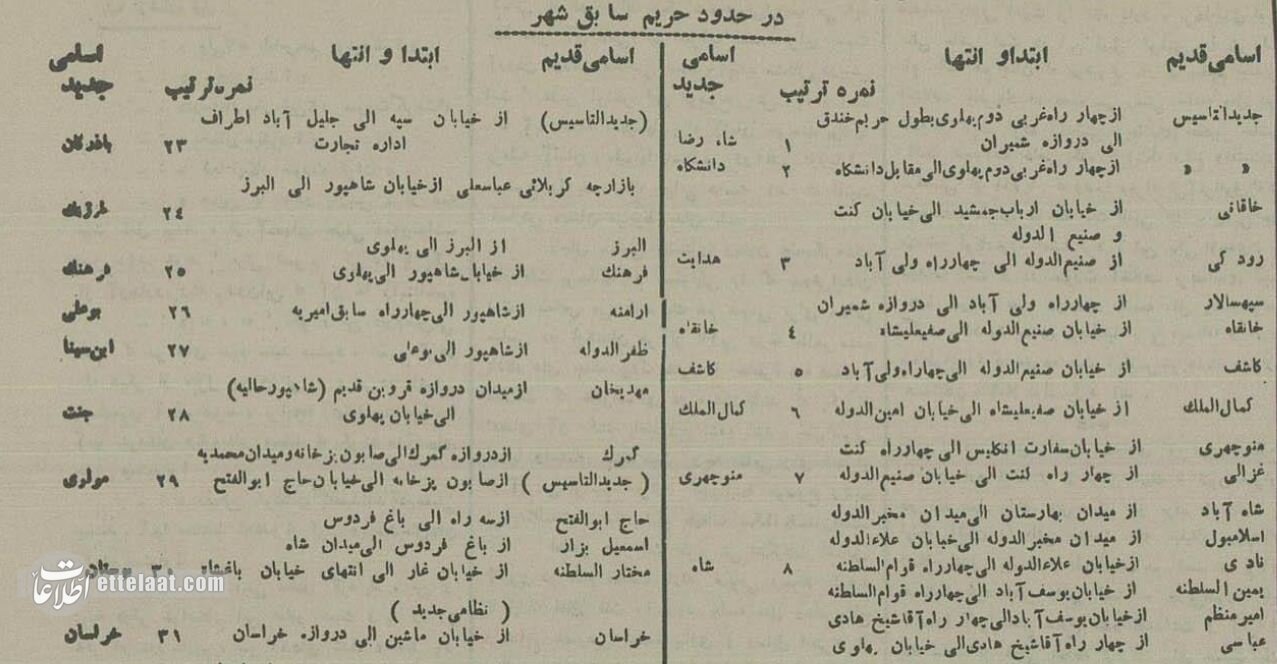 در حدود حریم سابق شهر
اسامی قدیم ابتدا و انتها نمره ترتیب اسامی جدید
جدیدالتاسیس از چهار راه غربی دوم پهلوی بطول حریم خندق
الی دروازه شمیران ۱ شاه رضا
» » از چهار راه غربی دوم پهلوی الی مقابل دانشگاه ۲ دانشگاه
خاقانی از خیابان ارباب جمشید الی خیابان کنت
و صنیع الدوله
رودکی از صنیع الدوله الی چهارراه ولی آباد ۳ هدایت
سپهسالار از چهارراه ولی آباد الی دروازه شمیران
خانقاه از خیابان صنیع الدوله الی صفیعلیشاه ۴ خانقاه
کاشف از خیابان صنیع الدوله الی چهاراه ولی آباد ۵ کاشف
کمال الملک از خیابان صفیعلیشاه الی خیابان امین الدوله ۶ کمال الملک
منوچهری از خیابان سفارت انگلیس الی چهارراه کنت
غزالی از چهار راه کنت الی خیابان صنیع الدوله ۷ منوچهری
شاه آباد از میدان بهارستان الی میدان مخبرالدوله
اسلامبول از میدان مخبرالدوله الی خیابان علاءالدوله
نادری از خیابان علاءالدوله الی چهارراه قوام السلطنه ۸ شاه
یمین السلطنه از خیابان یوسف آباد الی چهارراه قوام السلطنه
امیرمنظم از خیابان یوسف آباد الی چهار راه آقا شیخ هادی
عباسی از چهار راه آقا شیخ هادی الی خیابان پهلوی
اسامی قدیم ابتدا و انتها نمره ترتیب اسامی جدید
(جدیدالتاسیس) از خیابان سپه الی جلیل آباد اطراف
اداره تجارت ۲۳
بازارچه کربلائی عباسعلی از خیابان شاهپور الی البرز
۲۴
البرز از البرز الی پهلوی
فرهنگ از خیابان شاهپور الی پهلوی ۲۵ فرهنگ
ارامنه از شاهپور الی چهارراه سابق امیریه ۲۶ بوعلی
ظفرالدوله از شاهپور الی بوعلی ۲۷ ابن سینا
مهدیخان از میدان دروازه قزوین قدیم (شاهپور حالیه)
الی خیابان پهلوی ۲۸ جنت
گمرک از دروازه گمرک الی صابون پزخانه و میدان محمدیه
(جدیدالتاسیس) از صابون پزخانه الی خیابان حاج ابوالفتح ۲۹ مولوی
حاج ابوالفتح از سه راه الی باغ فردوس
اسمعیل بزاز از باغ فردوس الی میدان شاه
مختار السلطنه از خیابان غار الی انتهای خیابان باغشاه ۳۰
(نظامی جدید)
خراسان از خیابان ماشین الی دروازه خراسان ۳۱ خراسان
اطلاعات ettelaat.com